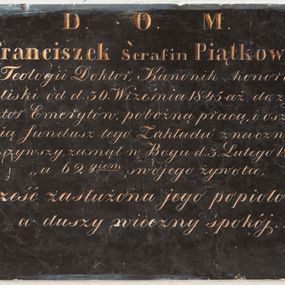 D. O. M.
Franciszek Serafin Piątkow
Teologii Doktor, Kanonik honor
liski od d. 30 Września 1845 aż do
tor Emerytów, pobożną pracą, i osz
ią fundusz tego Zakładu znaczn
szywszy, zasnął w Bogu d. 3. Lutego 1
w 62 giem swojego żywota.
ześć zasłużona jego popioło
a duszy wieczny spokój.